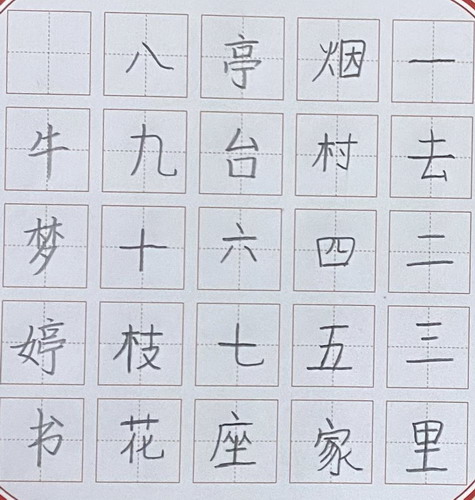 一去二三里
烟村四五家
亭台六七座
八九十枝花
牛梦婷书